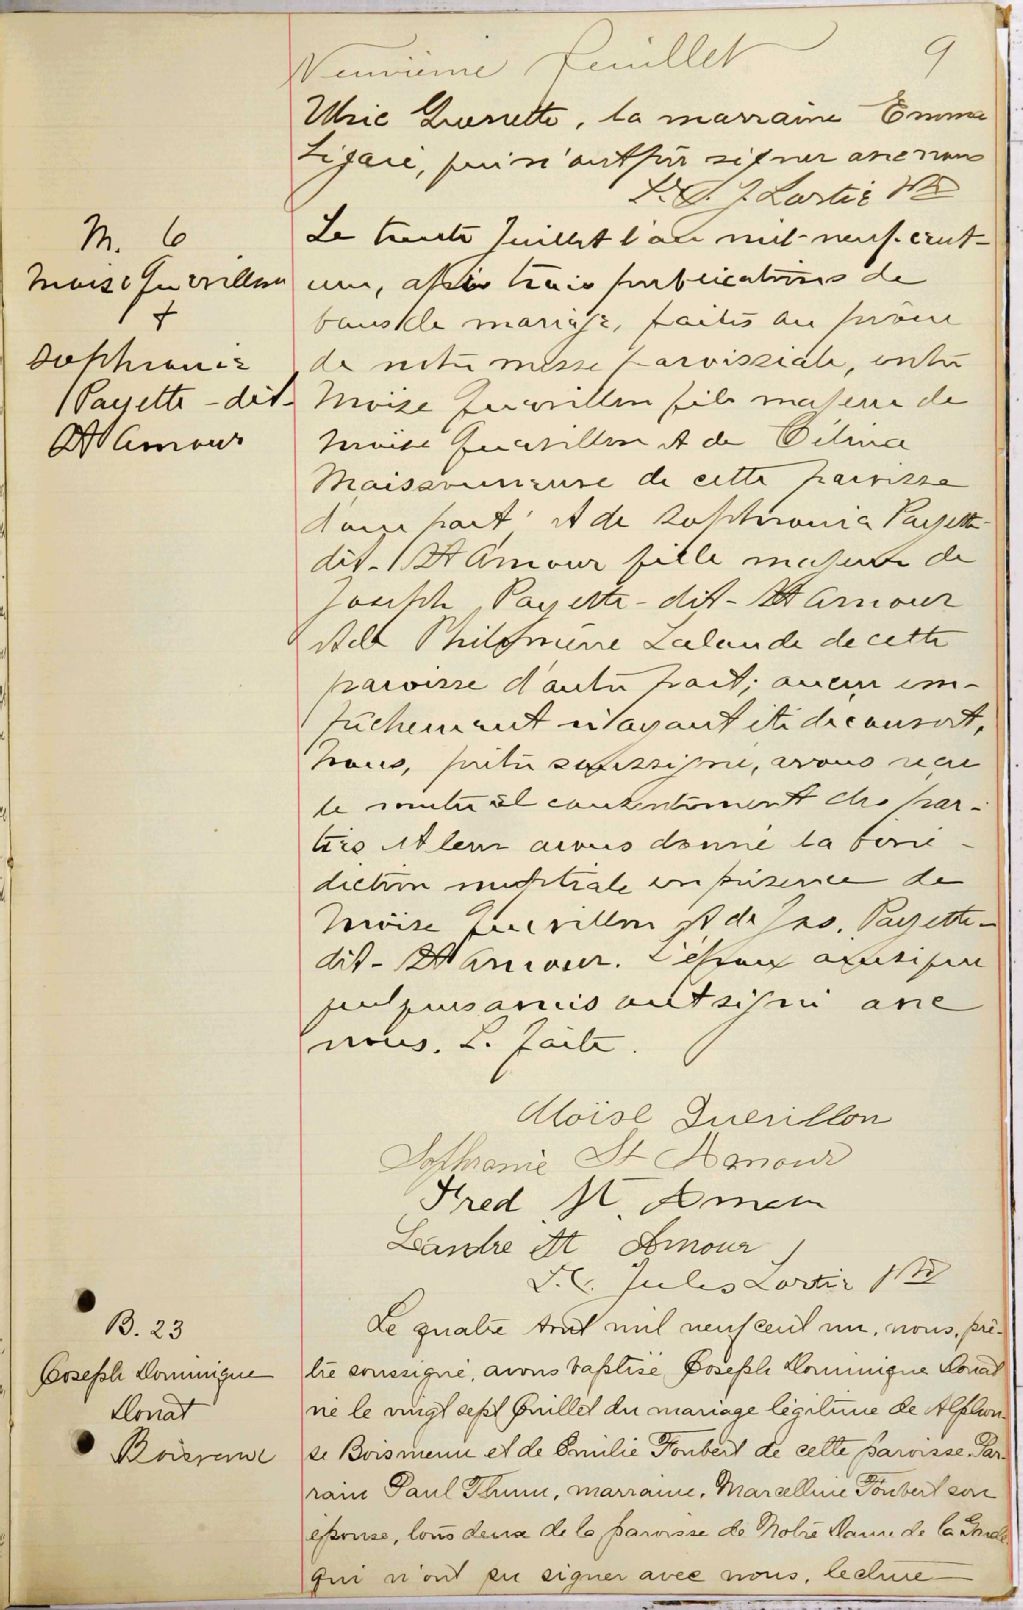 Neuvième feuillet 9
Ulric Guenette, la marraine Emma
Légaré, qui n'ont pû signer avec nous
J. Lortie Ptre
M. 6
Moise Quevillon
+
Sophronie
Payette - dit -
St Amour
Le trente Juillet l'an mil-neuf-cent-
un, après trois publications de
bans de mariage, faites au prône
de notre messe paroissiale, entre
Moise Quevillon fils majeur de
Moïse Quevillon et de Célina
Maisonneuve de cette paroisse
d'une part; et de Sophronia Payette-
dit- St Amour fille majeure de
Joseph Payette - dit - St Amour
et de Philomène Lalande de cette
paroisse d'autre part; aucun em-
pêchement n'ayant été découvert,
Nous, prêtre soussigné, avons reçu
le mutuel consentement des par-
ties et leur avons donné la béné-
diction nuptiale en présence de
Moïse Quevillon et de Jos. Payette-
dit- St Amour. L'époux ainsi que
quelques amis ont signé avec
nous. L. faite.
Moïse Quevillon
Sophronie St Amour
Fred St. Amour
Léandre St Amour
Jules Lortie Ptre
B. 23
Joseph Dominique
Donat
Boismenu
Le quatre Août mil neuf cent un, nous, prê-
tre soussigné, avons baptisé Joseph Dominique Donat
né le vingt sept Juillet du mariage légitime de Alphon-
se Boismenu et de Emilie Foubert de cette paroisse. Par-
rain Paul Thum, marraine, Marcelline Foubert son
épouse, tous deux de la paroisse de Notre Dame de la Garde
qui n'ont pu signer avec nous, lecture